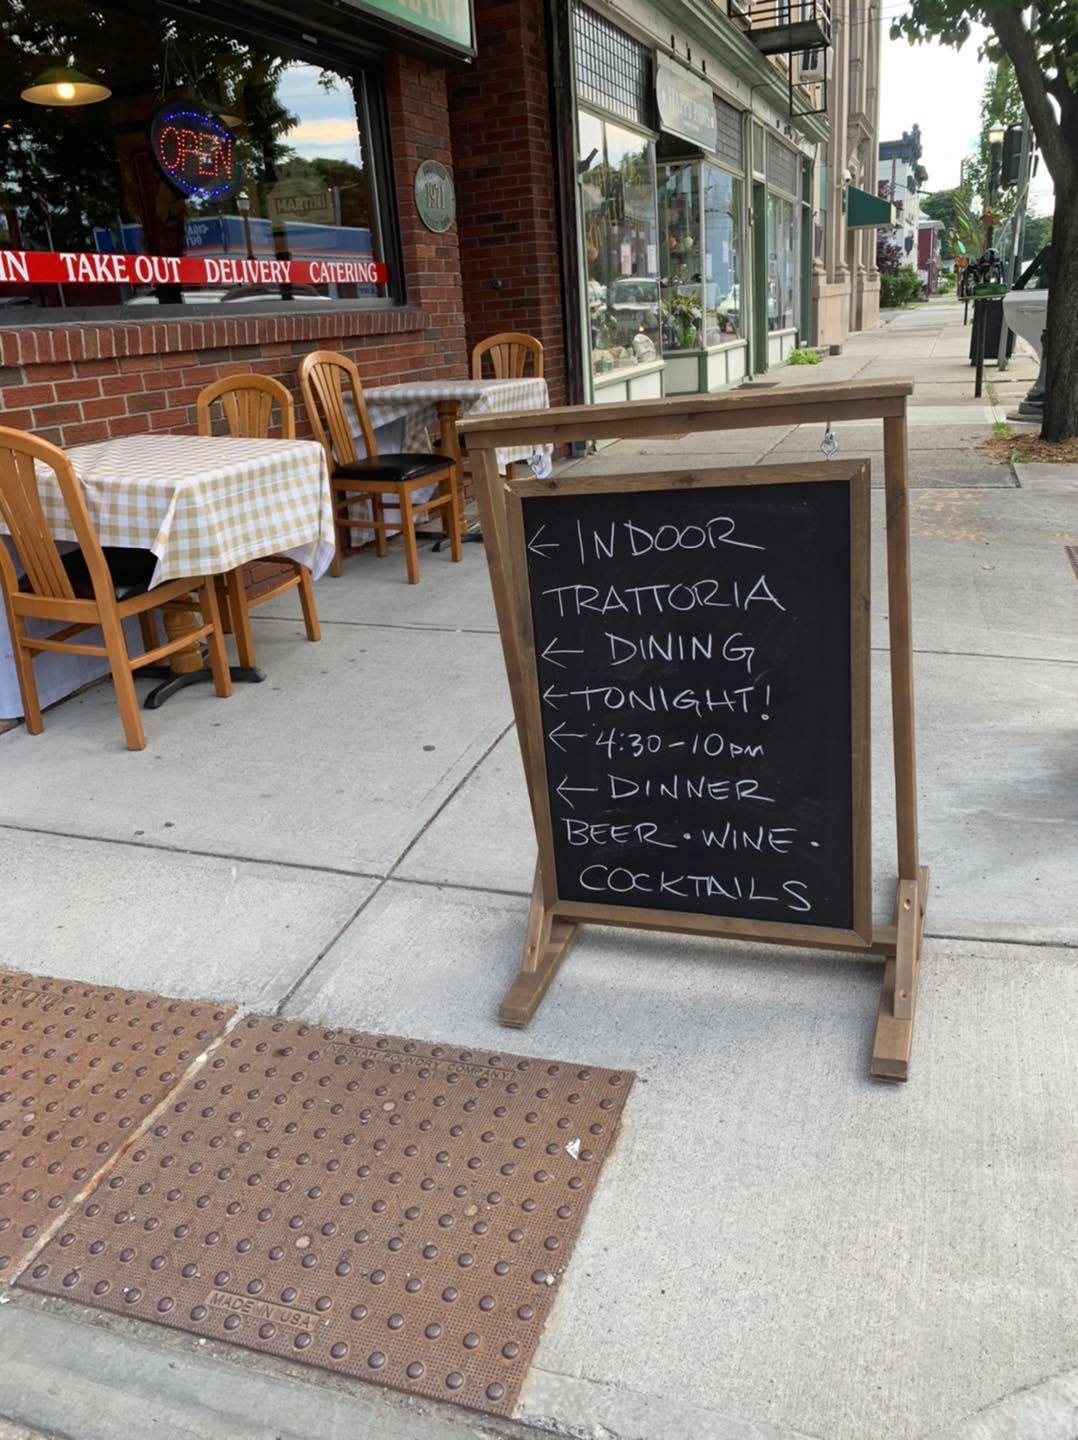 OPEN
1971
IN TAKE OUT DELIVERY CATERING
← INDOOR
TRATTORIA
← DINING
← TONIGHT!
← 4:30-10PM
← DINNER
BEER • WINE •
COCKTAILS
NEENAH FOUNDRY COMPANY
MADE IN USA